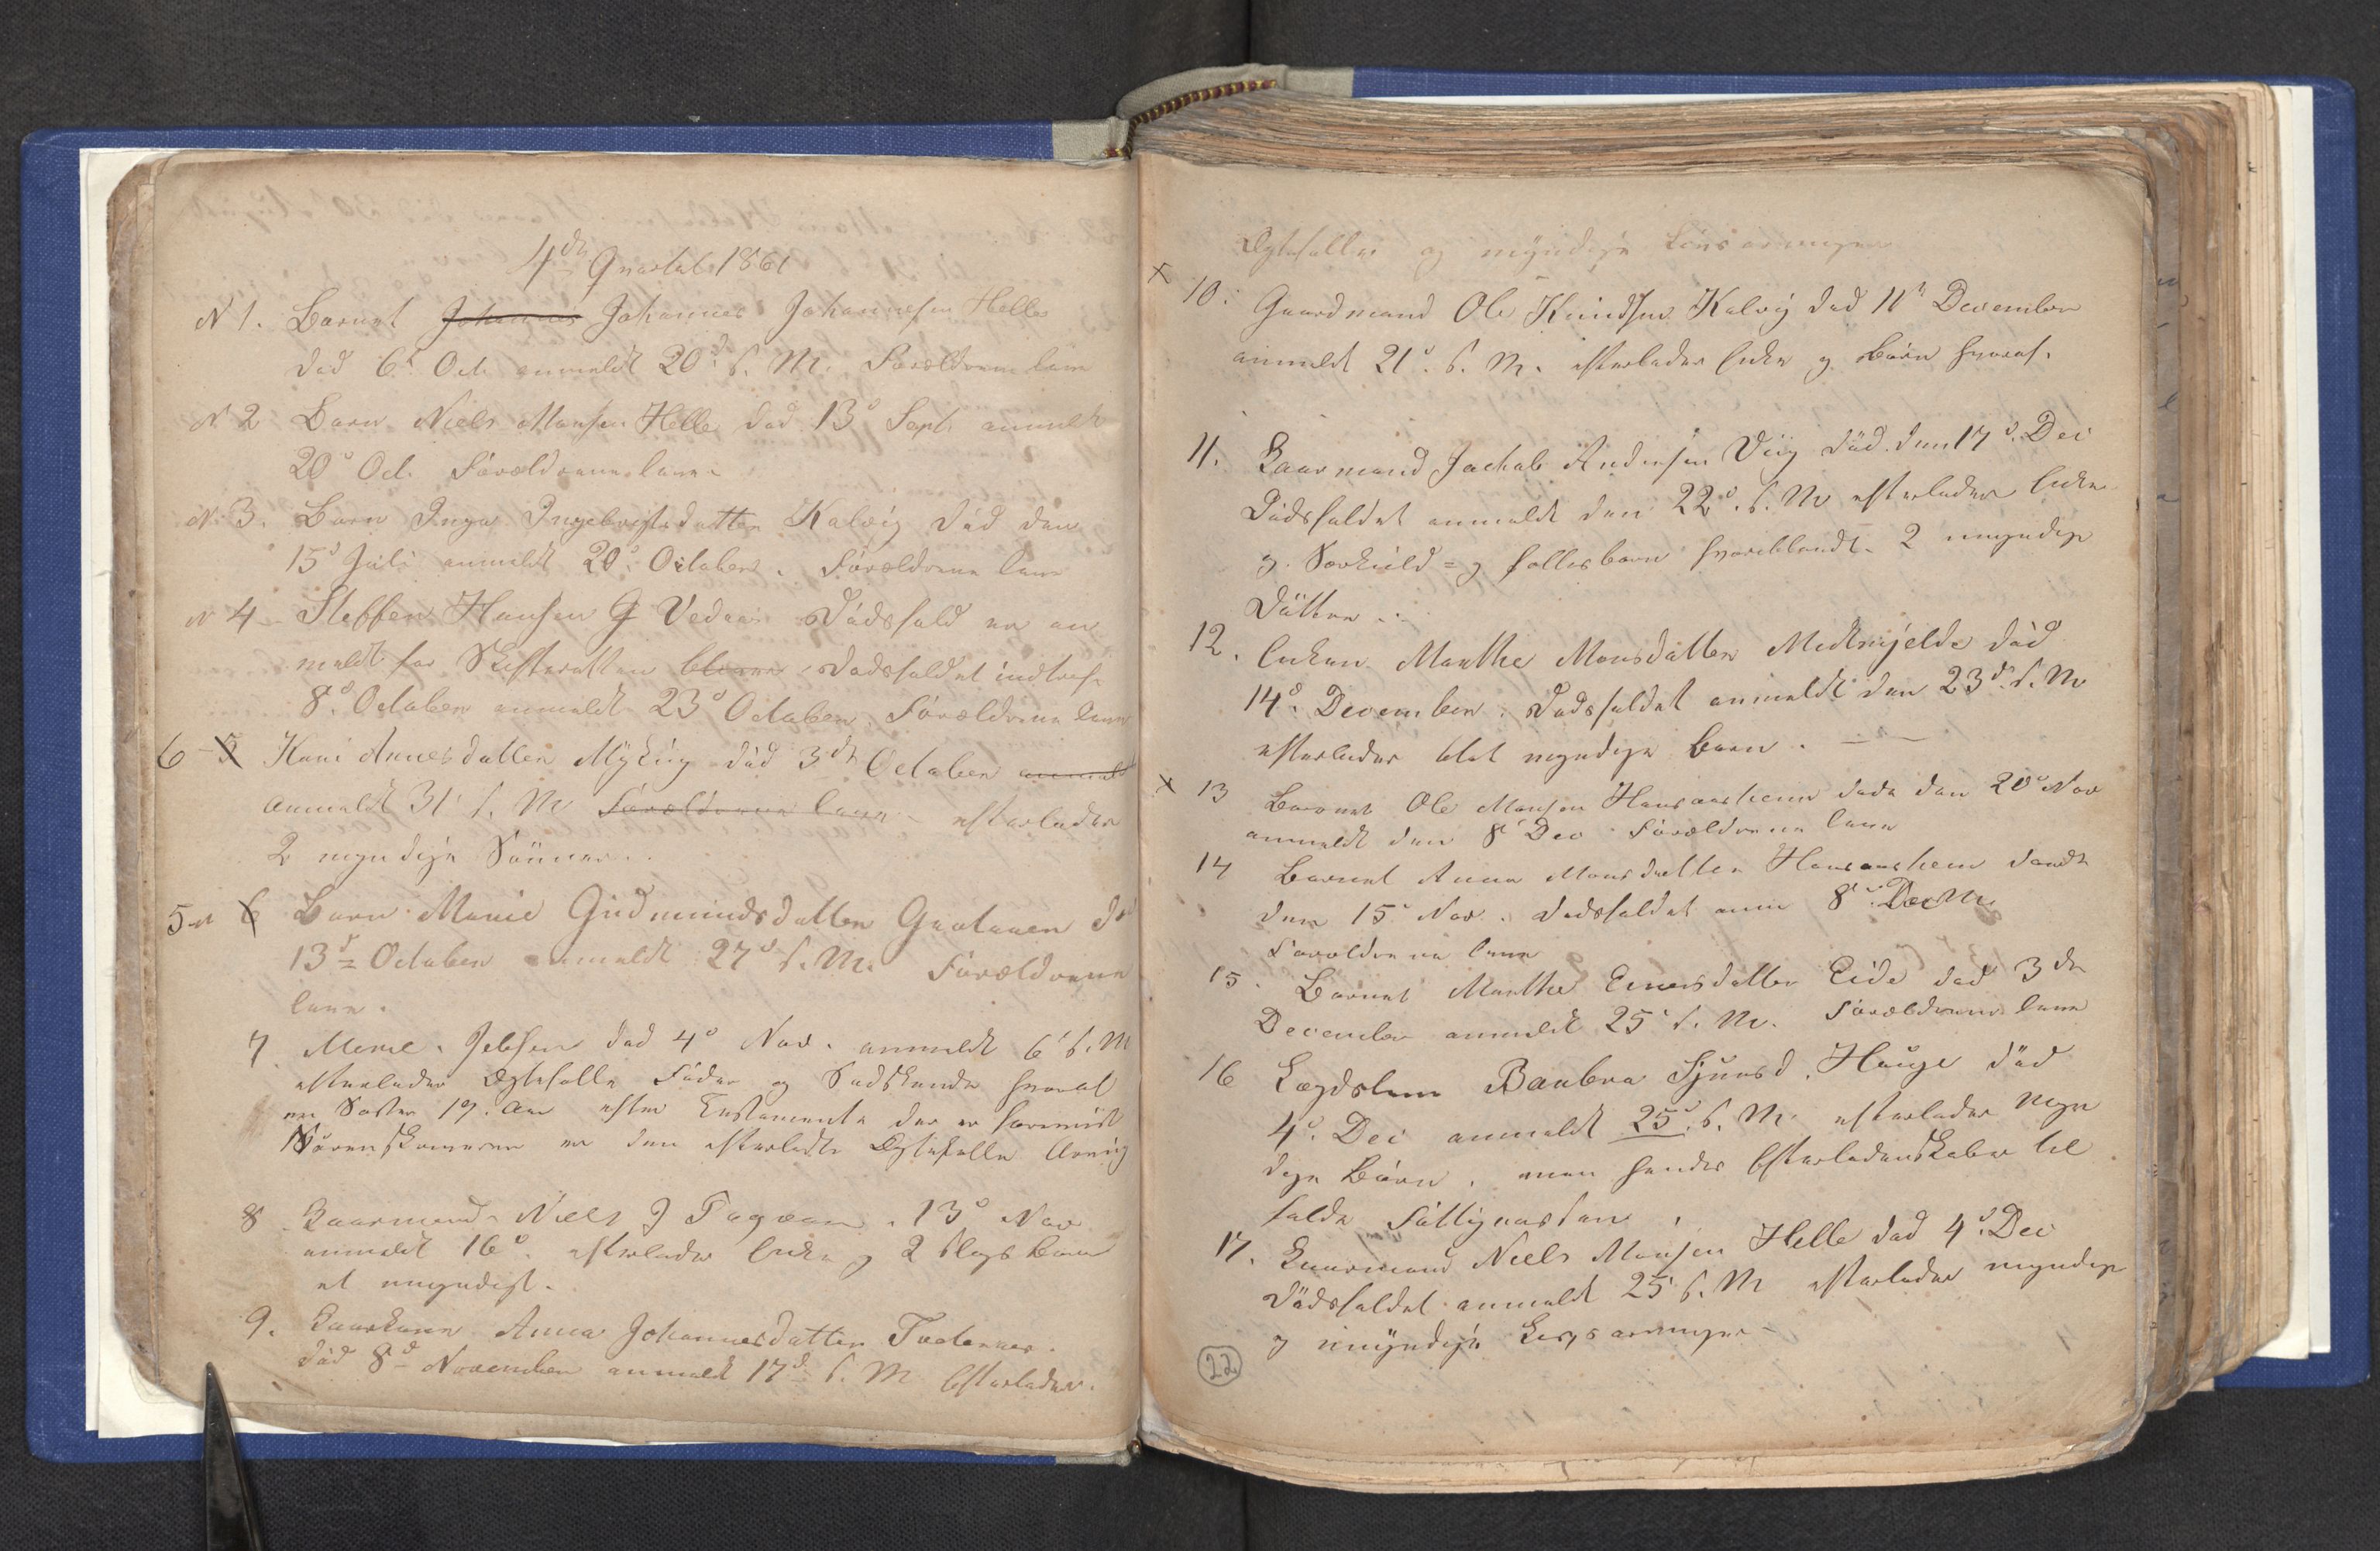 4de Qvartal 1861
N 1. Barnet Johannes Johannes Johannesen Helle
død 6te Oct anmeldt 20d s. M. Forældrene leve
N 2 Barn Niels Monsen Helle død 13d Sept. anmeldt
20d Oct. Forældrene leve
N. 3. Barn Inga Ingebrigtsdatter Kalvig død den
15d Juli anmeldt 20d October. Forældrene leve
N 4 Steffen Hansen Vedaa Dødsfald er an
meldt for Skifteretten Dødsfaldet indtraf
8d October anmeldt 23d October. Forældrene leve
6 5 Kari Annesdatter Myking død 3de October anmeldt
anmeldt 31 s. M Forældrene leve - efterlader
2 myndige Sønner.
5 N 6 Barn Marie Gudmundsdatter død
13d October anmeldt 27d s. M. Forældrene
leve.
7 Jebsen død 4d Nov. anmeldt 6 s. M
efterlader Ægtefælle Fader og Sødskende hvoraf
en Søster 19. Aar efter Testamente der er
Sørenskriveren er den efterladte Ægtefælle
8 Kaarmand Niels J Fagaas. 13d Nov
anmeldt 16d. efterlader Enke og 2 Slags Børn
et umyndigt.
9. Kaarkone Anna Johannesdatter
død 8d November anmeldt 17d s. M Efterlader.
Ægtefælle og myndige Livsarvinger
x 10. Gaardmand Ole Knudsen Kalvig død 11te December
anmeldt 21d. s. M. efterlader Enke og Børn hvoraf.
11. Kaarmand Jachob Andersen Viig død den 17d. Dec
Dødsfaldet anmeldt den 22d. s. M efterlader Enke
og Særkuld = og fællesbørn hvoriblandt 2 umyndige
Døttre.
12. Enken Marthe Monsdatter Midtmjelde død
14d. December. Dødsfaldet anmeldt den 23d. s. M
efterlader blot myndige Børn.
x 13 Barnet Ole Monsen døde den 20d Nov
anmeldt den 8d Dec Forældrene leve
14 Barnet Anna Monsdatter døde
den 15d Nov. Dødsfaldet anm 8d. Dec
Forældrene leve
15. Barnet Marthe Einersdatter Eide død 3de
December anmeldt 25d s. M. Forældrene leve
16 Lægdslem Banbra Sjursd. Hauge død
4d. Dec anmeldt 25d. s. M. efterlader myn
dige Børn, men hendes Efterladenskaber til
falde Fattigcassen.
17. Kaarmand Niels Monsen Helle død 4d. Dec
Dødsfaldet anmeldt 25 s. M efterlader myndige
og umyndige Livsarvinger
22